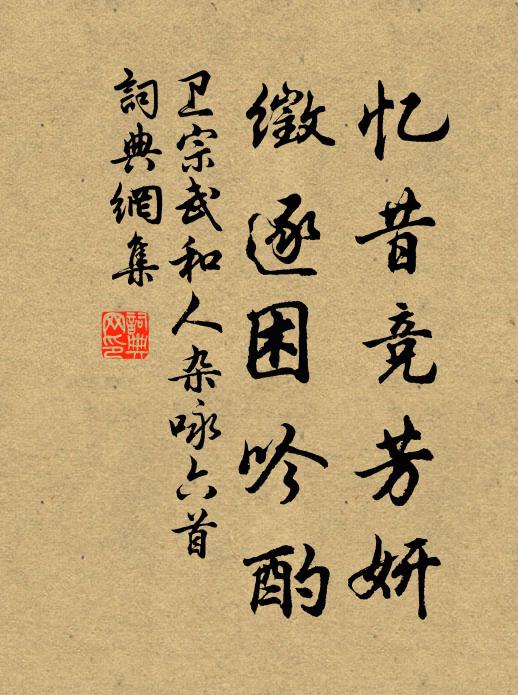 忆昔竞芳妍
徵逐困吟酌
卫宗武和人杂咏六首
詞典網集
詞典網印